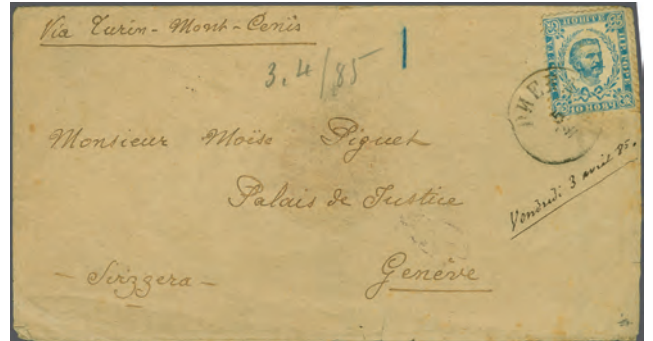 Via Turin - Mont - Cenis
3.4/85
Monsieur Moïse Piguet
Palais de Justice
Vendredi 3 avril 85.
- Svizzera -
Genève